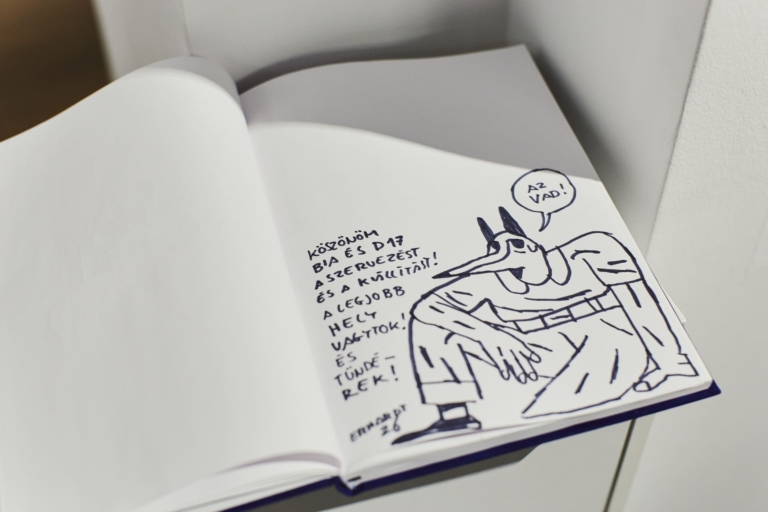 KÖSZÖNÖM
BIA ÉS D17
A SZERVEZÉST
ÉS A KIÁLLÍTÁST!
A LEGJOBB
HELY
VAGYTOK!
ÉS
TÜNDÉ-
REK!
26
AZ
VAD!